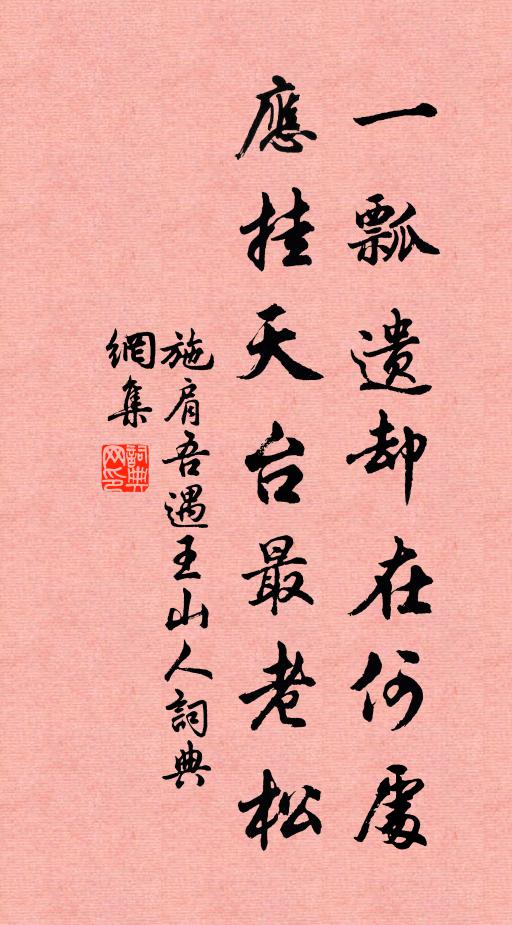 一瓢遺却在何處
應挂天台最老松
施肩吾遇王山人詞典
網集
詞典
网印